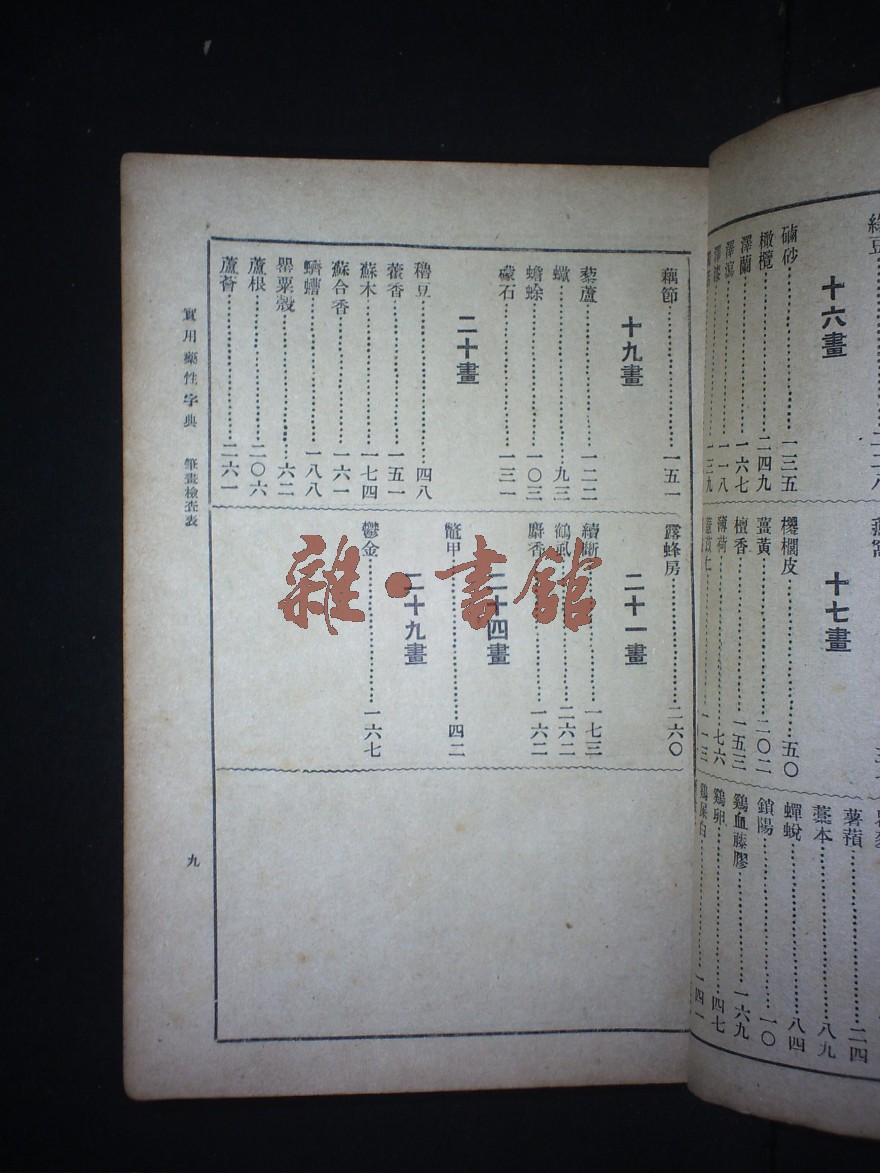 十六畫
硇砂一三五
橄欖二四九
澤蘭一六七
澤瀉一一八
十七畫
椶櫚皮五〇
薑黃二〇二
檀香一五三
薄荷七六
薯蕷二四
藁本八九
蟬蛻八四
鎖陽一〇
鷄血藤膠一六九
鷄卵四七
鷄屎白一四一
藕節一五一
十九畫
藜蘆一二二
蠍九三
蟾蜍一〇三
礞石一三一
二十畫
穭豆四八
藿香一五一
蘇木一七四
蘇合香一六一
蠐螬一八八
罌粟殼六二
蘆根二〇六
蘆薈二六一
露蜂房二六〇
二十一畫
續斷一七三
鶴虱二六二
麝香一六二
二十四畫
鼈甲四二
二十九畫
鬱金一六七
實用藥性字典 筆畫檢查表
九
雜·書館